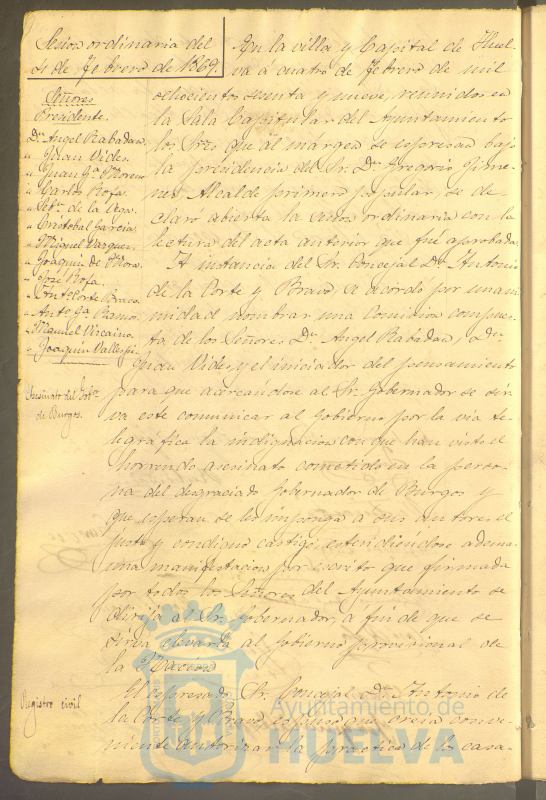 Sesion ordinaria del
4 de Febrero de 1869.
Señores
Presidente.
Dn. Angel Rabadan.
" Juan Vides.
" Juan Ga. Moreno
" Carlos Rofa.
" de la Vega.
" Cristobal Garcia.
" Miguel Vazquez.
" Joaquin de Mora.
" José Rofa.
" Anto. Corte Bravo.
" Anto. Ga. Ramos
" Manuel Vizcaino.
" Joaquin Vallespi.
En la villa y Capital de Huel-
va á cuatro de Febrero de mil
ochocientos sesenta y nueve, reunidos en
la Sala Capitular del Ayuntamiento
los Sres. que al margen se espresan bajo
la presidencia del Sr. Dn. Gregorio Jime-
nez Alcalde primero popular, se de-
claró abierta la sesion ordinaria con la
lectura del acta anterior que fué aprobada.
A instancia del Sr. Concejal Dn. Antonio
de la Corte y Bravo se acordó por unani-
midad nombrar una Comision compues-
ta de los Señores Dn. Angel Rabadan, Dn.
Juan Vides, y el iniciador del pensamiento
Asesinato del Gobr.
de Burgos.
para que acercándose al Sr. Gobernador se sir-
va este comunicar al Gobierno por la via te-
legráfica la indignacion con que han visto el
horrendo asesinato cometido en la perso-
na del desgraciado Gobernador de Burgos y
que esperan se les imponga á sus autores el
justo y condigno castigo, estendiendose ademas
una manifestacion por escrito que firmada
por todos los Señores del Ayuntamiento se
dirija al Sr. Gobernador, á fin de que se
sirva elevarla al Gobierno provisional de
la Nacion.
Registro civil
El espresado Sr. Concejal Dn. Antonio de
la Corte y Bravo, espuso que creia conve-
niente autorizar la practica de los casa-
Ayuntamiento de
HUELVA